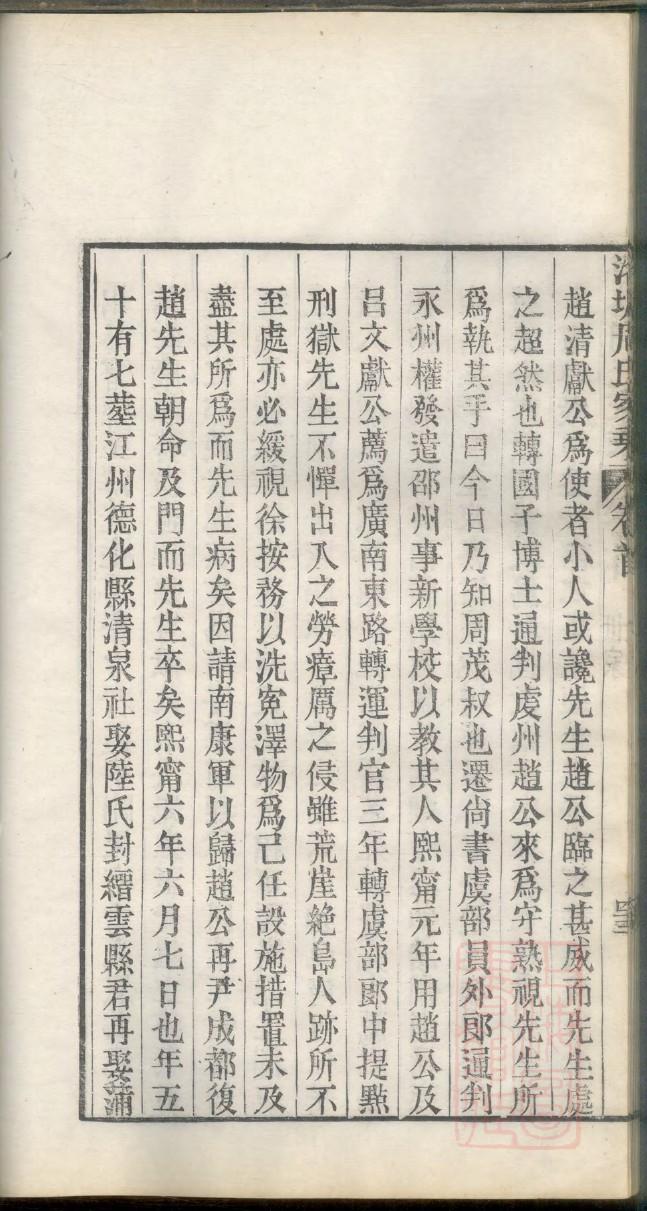 趙清獻公爲使者小人或讒先生趙公臨之甚威而先生處
之超然也轉國子博士通判虔州趙公來爲守熟視先生所
爲執其手曰今日乃知周茂叔也遷尙書虞部員外郎通判
永州權發遣邵州事新學校以教其人熙甯元年用趙公及
呂文獻公薦爲廣南東路轉運判官三年轉虞部郎中提點
刑獄先生不憚出入之勞瘴厲之侵雖荒崖絶島人跡所不
至處亦必緩視徐按務以洗寃澤物爲己任設施措置未及
盡其所爲而先生病矣因請南康軍以歸趙公再尹成都復
趙先生朝命及門而先生卒矣熙甯六年六月七日也年五
十有七塟江州德化縣清泉社娶陸氏封縉雲縣君再娶蒲